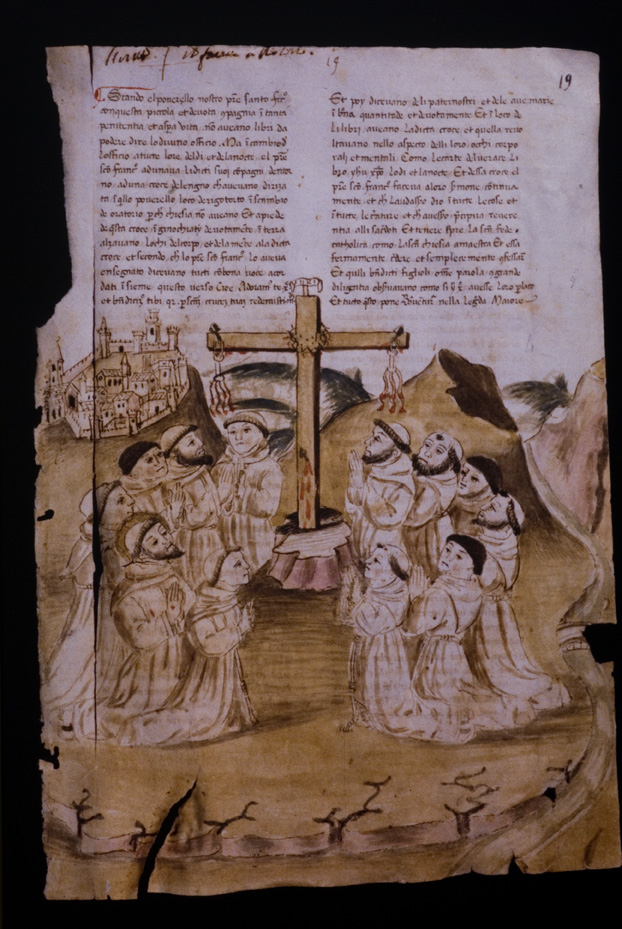 19
19
Stando el pouerello nostro pre santo
conquesta piccola et deuota 9pagnia i tanta
penitentia et aspa uita. nō aueano libri da
podere dire lo diuino officio. Ma i cambio d
lofficio a tucte lore. del di et de la nocte. el pre
scō franc adunaua li dicti suoi cōpagni dento
no. ad una croce de lengno ch aueuano diriza
ta i qllo pouerello loco de rigotorto i scambio
de oratorio. pch chiesia nō aueano Et a piede
de qsta croce i ginochiaty deuotamēte. i terra
alzauano. Lochi del corpo. et de la mēte a la dicta
croce. et secondo. ch lo pre scō franc lo aueua
ensegnato diceuano tucti cō bona uoce acor
dati i sieme. questo uerso Cioe. Adoram te
et bndicim tibi. qr p scam crucez tuaz redemisti
Et poy diceuano. de li paternostri et dele aue marie
i bna quantitade et deuotomente Et i loco de
li libri aueano. La dicta croce. et quella reuo
ltauano nello aspecto delli loro. ochi corpo
rali et mentali. Como. Le carte del uerace Li
bro. yhu xpo Lodi et la nocte. Et dessa croce el
pre scō franc faceua a loro smone. cōtinua
mente. et ch Laudasso dio i tucte le cose et
i tucte. le creature. et ch auesso ppria reuere
ntia alli sacdoti Et tenere spre. La scā fede.
catholica como. La scā chiesia amaestra Et essa
fermamente cdere. et semplecemente 9fessaf
Et quilli bndicti figlioli omē parola 9 grande
diligentia obsuauano como si auesse. Loro plato
Et tucto qsto pone bonauetura nella legda Maiore